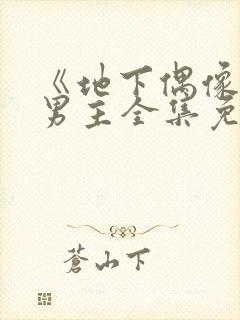 《地下偶像
男主全集免
蒼山下